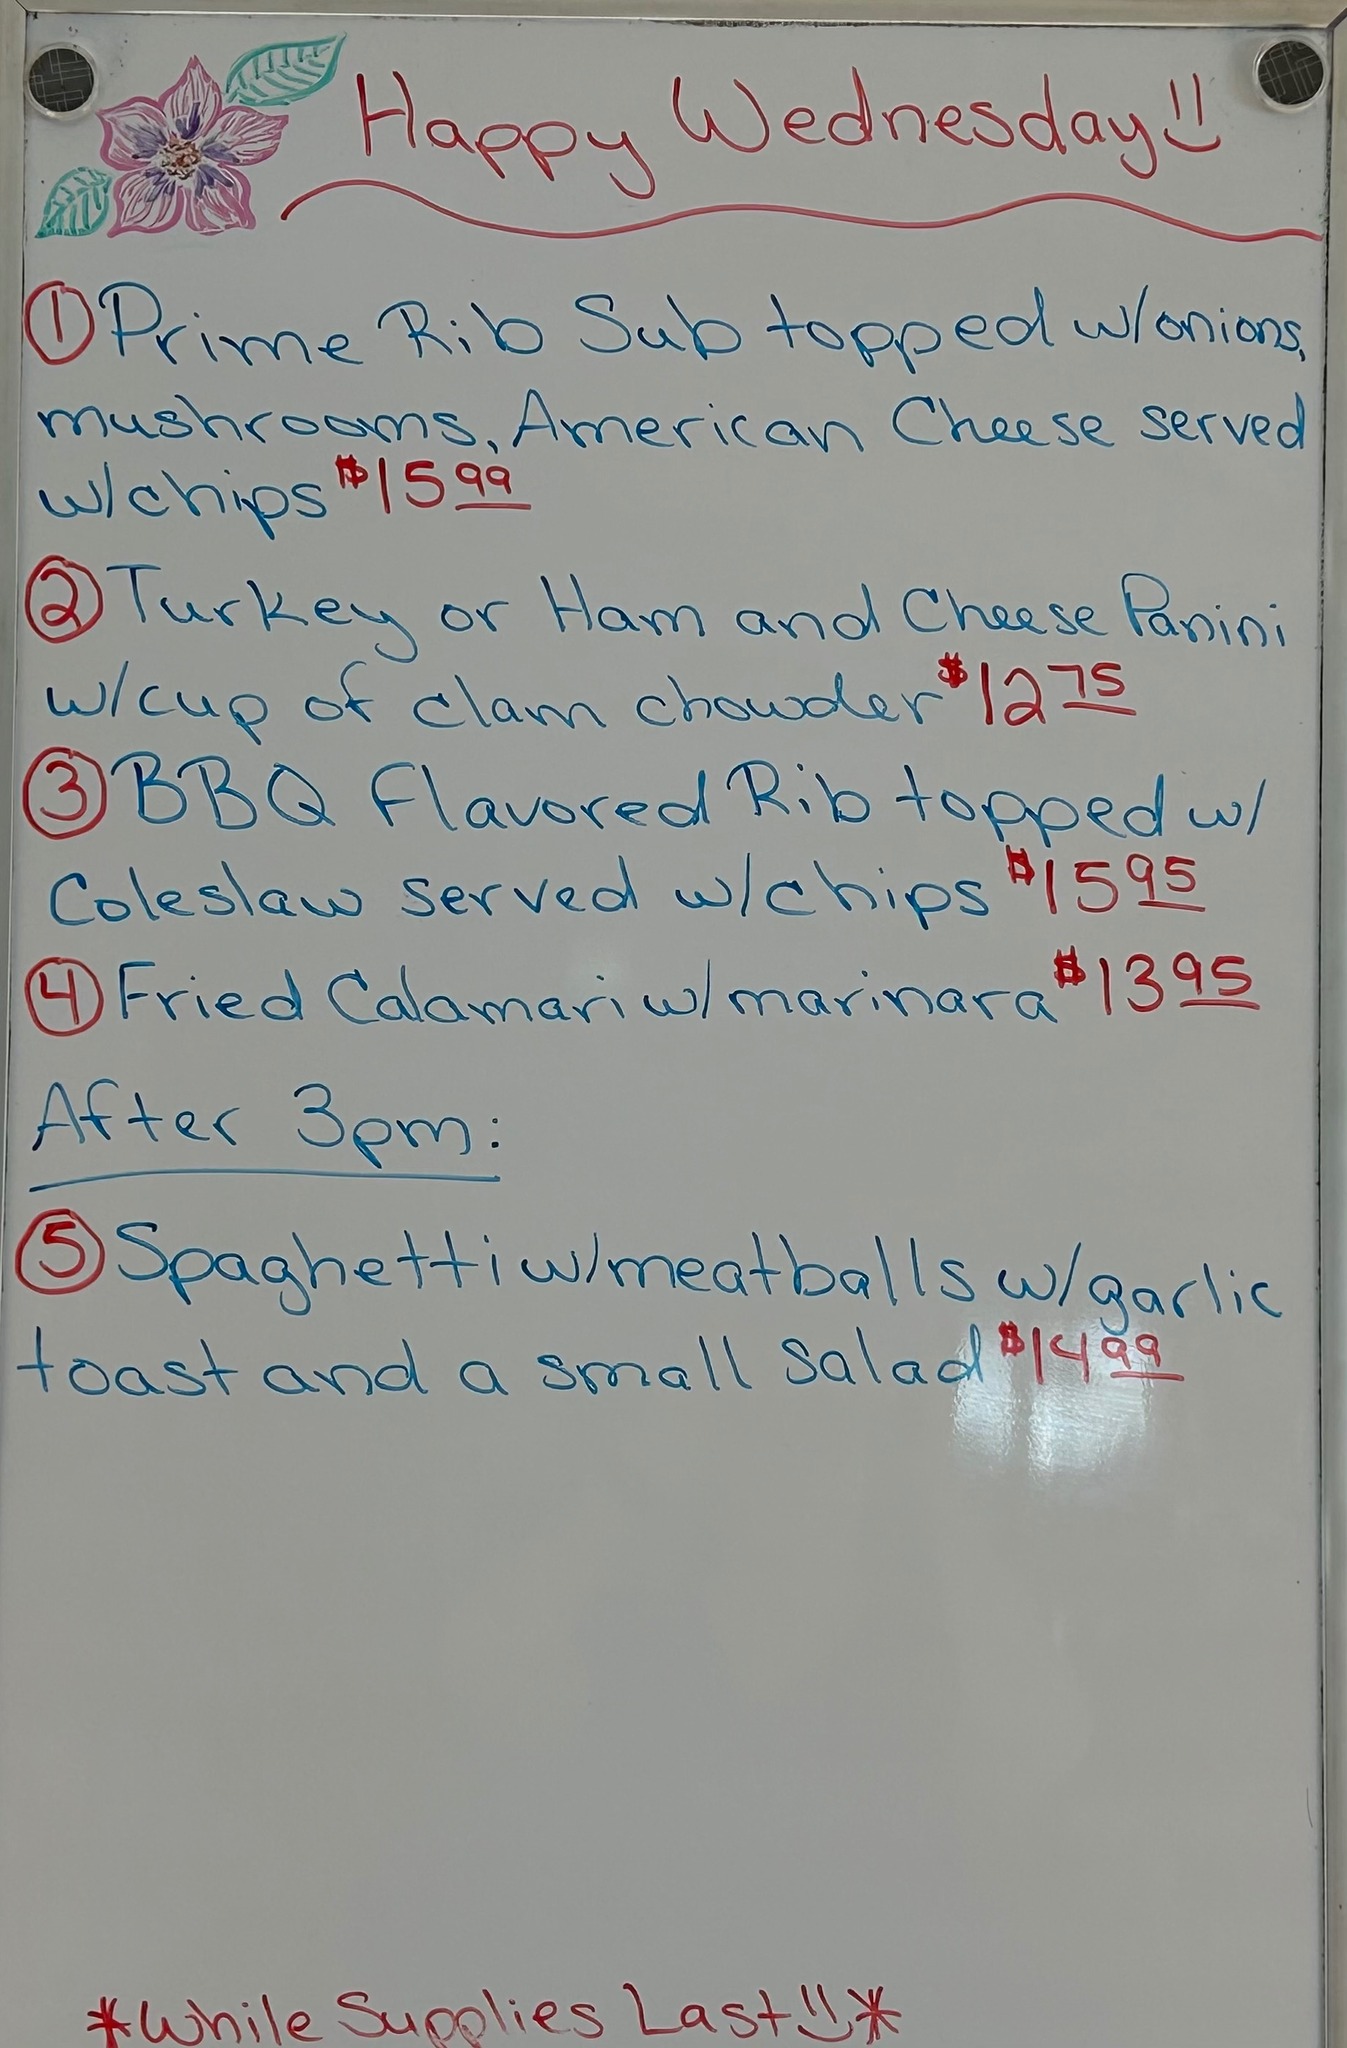 Happy Wednesday!!
① Prime Rib Sub topped w/onions,
mushrooms, American Cheese served
w/chips $15 99
② Turkey or Ham and Cheese Panini
w/cup of clam chowder $12 75
③ BBQ Flavored Rib topped w/
Coleslaw served w/chips $15 95
④ Fried Calamari w/marinara $13 95
After 3pm:
⑤ Spaghetti w/meatballs w/garlic
toast and a small salad $14 99
*While Supplies Last!!*